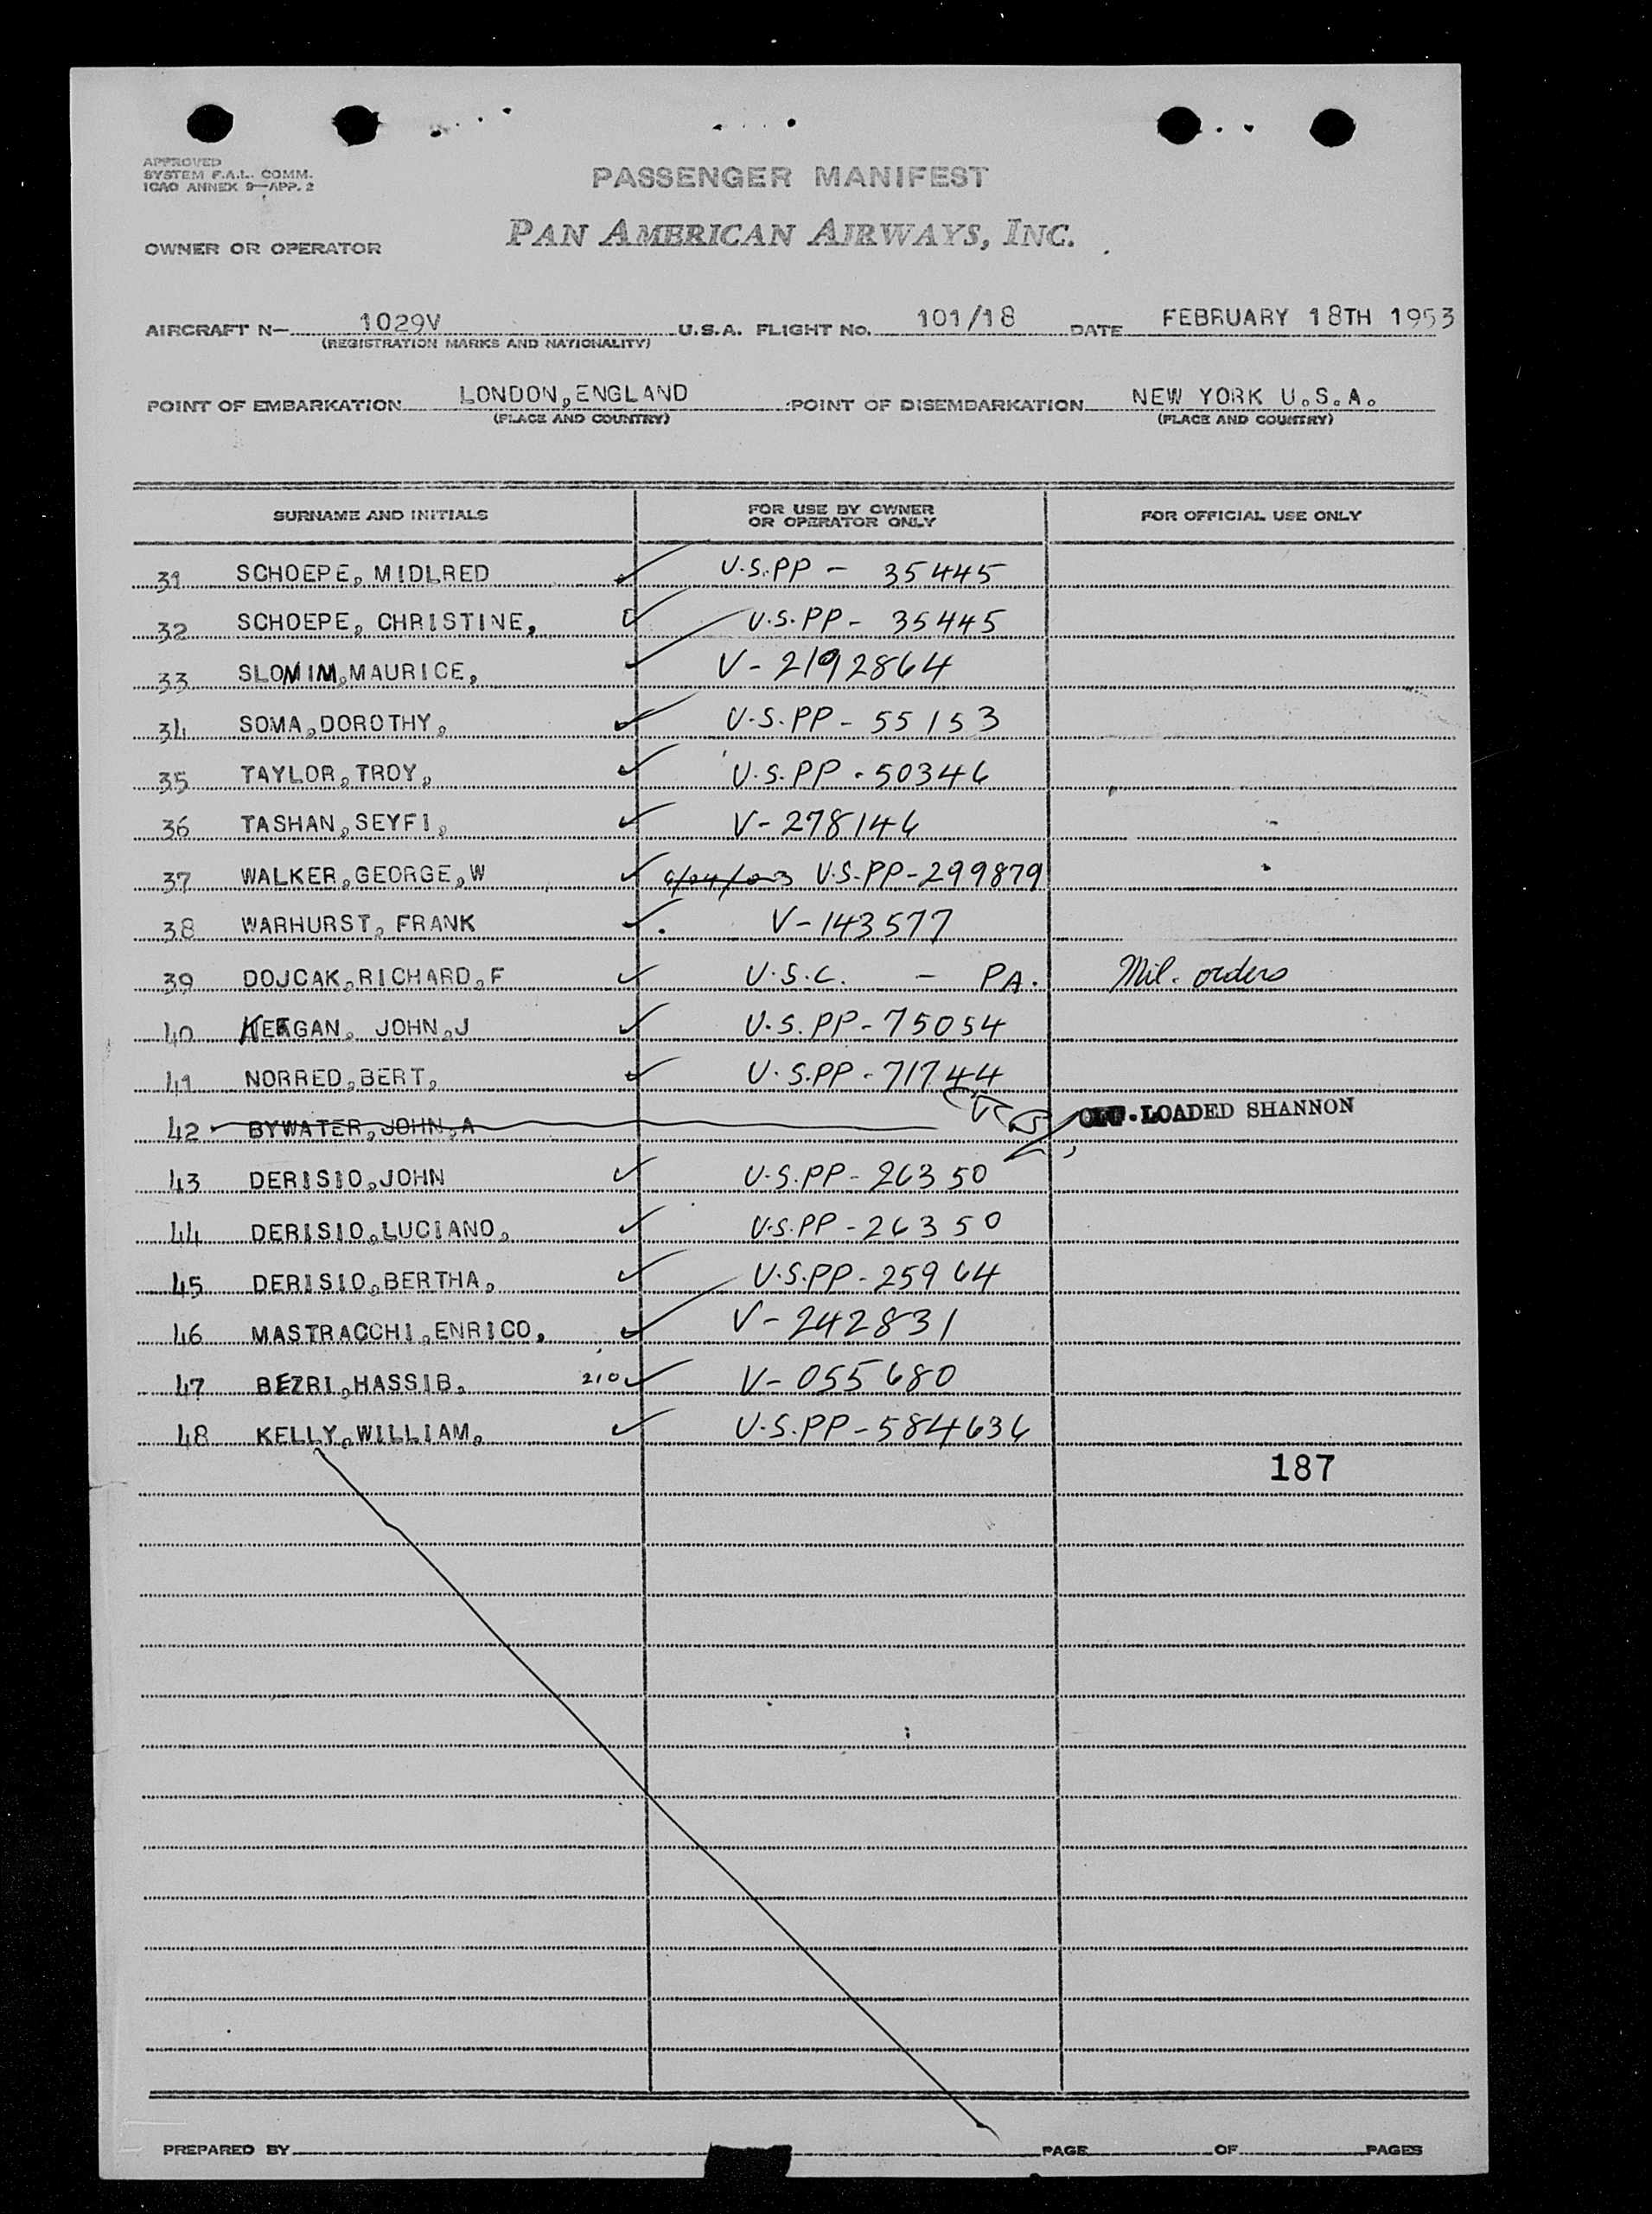 APPROVED
SYSTEM F.A.L. COMM.
ICAO ANNEX 9—APP. 2
PASSENGER MANIFEST
OWNER OR OPERATOR PAN AMERICAN AIRWAYS, INC.
AIRCRAFT N— 1029V U.S.A. FLIGHT NO. 101/18 DATE FEBRUARY 18TH 1953
(REGISTRATION MARKS AND NATIONALITY)
POINT OF EMBARKATION LONDON, ENGLAND POINT OF DISEMBARKATION NEW YORK U.S.A.
(PLACE AND COUNTRY) (PLACE AND COUNTRY)
SURNAME AND INITIALS FOR USE BY OWNER OR OPERATOR ONLY FOR OFFICIAL USE ONLY
31 SCHOEPE, MIDLRED U.S.PP - 35445
32 SCHOEPE, CHRISTINE, U.S.PP - 35445
33 SLOMIM, MAURICE, V - 2192864
34 SOMA, DOROTHY, U.S.PP - 55153
35 TAYLOR, TROY, U.S.PP - 50346
36 TASHAN, SEYFI, V - 278146
37 WALKER, GEORGE, W U.S.PP - 299879
38 WARHURST, FRANK V - 143577
39 DOJCAK, RICHARD, F U.S.C. - PA. Mil. orders
40 KEAGAN, JOHN, J U.S.PP - 75054
41 NORRED, BERT, U.S.PP - 71744
42 BYWATER, JOHN, A OFF-LOADED SHANNON
43 DERISIO, JOHN U.S.PP - 26350
44 DERISIO, LUCIANO, U.S.PP - 26350
45 DERISIO, BERTHA, U.S.PP - 25964
46 MASTRACCHI, ENRICO, V - 242831
47 BEZRI, HASSIB, 210 V - 055680
48 KELLY, WILLIAM, U.S.PP - 584636
187
PREPARED BY PAGE OF PAGES